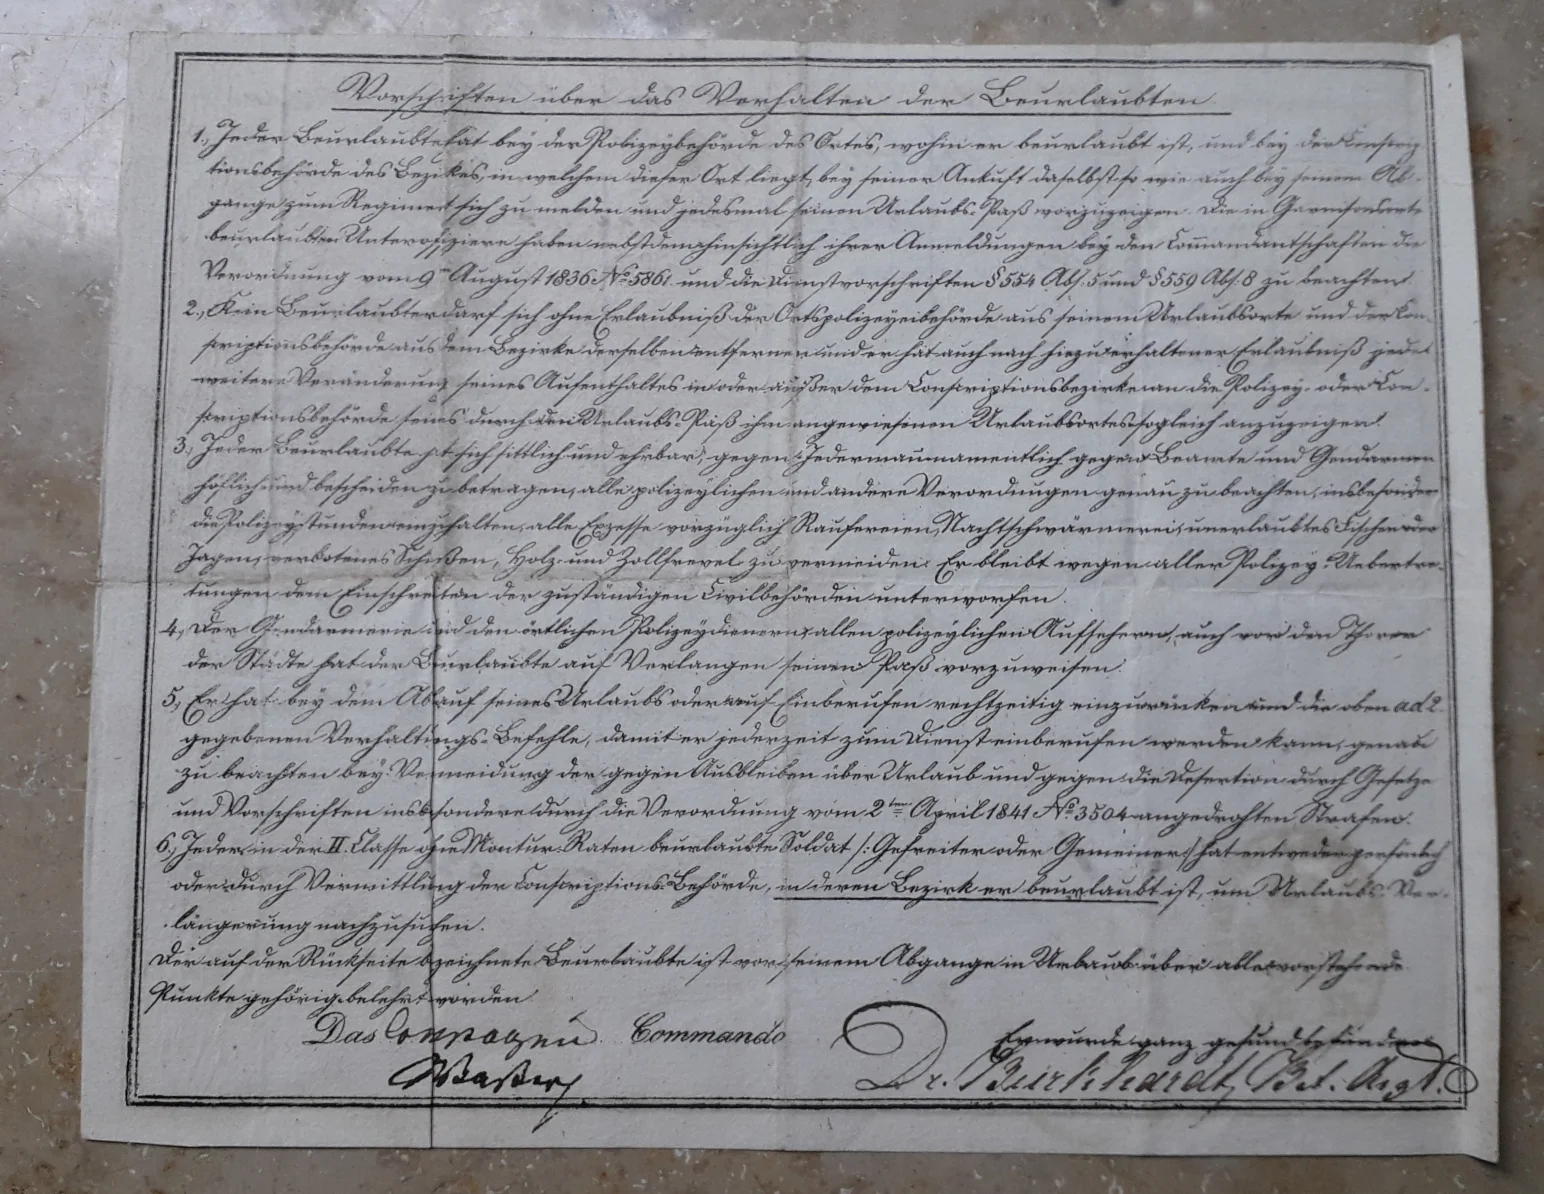 Vorschriften über das Verhalten der Beurlaubten
1., Jeder Beurlaubte hat bey der Polizeybehörde des Ortes, wohin er beurlaubt ist, und bey der Conscrip
tionsbehörde des Bezirkes, in welchem dieser Ort liegt, bey seiner Ankuft daselbst so wie auch bey seinem Ab-
gange zum Regiment sich zu melden und jedesmal seinen Urlaubs-Paß vorzuzeigen. Die in Garnisonsorte
beurlaubten Unteroffiziere haben nebstdem hinsichtlich ihrer Anmeldungen bey den Commandantschaften die
Verordnung vom 9ten August 1836 No 5861 und die Dienstvorschriften § 554 Abs. 5 und § 559 Abs. 8 zu beachten.
2., Kein Beurlaubter darf sich ohne Erlaubniß der Ortspolizeybehörde aus seinem Urlaubsorte und der Con-
scriptionsbehörde aus dem Bezirke derselben entfernen und er hat auch nach hiezu erhaltener Erlaubniß jede
weitere Veränderung seines Aufenthaltes in oder außer dem Conscriptionsbezirke an die Polizey- oder Con-
scriptionsbehörde seines durch den Urlaubs-Paß ihm angewiesenen Urlaubsortes sogleich anzuzeigen.
3., Jeder Beurlaubte hat sich sittlich und ehrbar, gegen Jedermann namentlich gegen Beamte und Gendarmen
höflich und bescheiden zu betragen, alle polizeylichen und andere Verordnungen genau zu beachten, insbesondere
die Polizeystunden einzuhalten, alle Exzesse vorzüglich Raufereien, Nachtschwärmerei, unerlaubtes Fischen oder
Jagen, verbotenes Schießen, Holz- und Zollfrevel zu vermeiden. Er bleibt wegen aller Polizey-Uebertre-
tungen dem Einschreiten der zuständigen Civilbehörden unterworfen.
4., Der Gendarmerie und den örtlichen Polizeydienern, allen polizeylichen Aufsehern, auch vor den Thoren
der Städte hat der Beurlaubte auf Verlangen seinen Paß vorzuweisen.
5., Er hat bey dem Ablauf seines Urlaubs oder auf Einberufen rechtzeitig einzurücken und die oben ad 2.
gegebenen Verhaltungs-Befehle, damit er jederzeit zum Dienst einberufen werden kann, genau
zu beachten bey Vermeidung der gegen Ausbleiben über Urlaub und gegen die Desertion durch Gesetze
und Vorschriften insbesondere durch die Verordnung vom 2ten April 1841 No 3504 angedrohten Strafen.
6., Jeder in der II. Classe ohne Montur-Raten beurlaubte Soldat /: Gefreiter oder Gemeiner :/ hat entweder persönlich
oder durch Vermittlung der Conscriptions-Behörde, in deren Bezirk er beurlaubt ist, um Urlaubs-Ver-
längerung nachzusuchen.
Der auf der Rückseite bezeichnete Beurlaubte ist vor seinem Abgange in Urlaub über alle vorstehende
Punkte gehörig belehrt worden.
Das Compagnie Commando
Er wurde ganz gesund befunden
Dr. Burkhardt, Bat. Arzt.